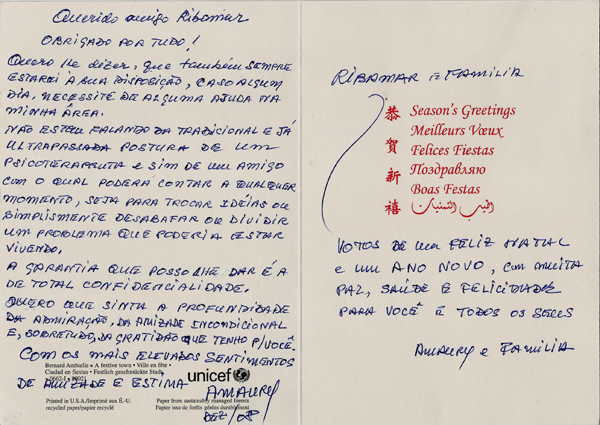 Querido amigo Ribamar
OBRIGADO POR TUDO!
Quero lhe dizer, que também SEMPRE
ESTAREI À SUA DISPOSIÇÃO, CASO ALGUM
DIA, NECESSITE DE ALGUMA AJUDA NA
MINHA ÁREA.
NÃO ESTOU FALANDO DA TRADICIONAL E JÁ
ULTRAPASSADA POSTURA DE UM
PSICOTERAPEUTA e SIM DE UM AMIGO
COM O QUAL PODERÁ CONTAR A QUALQUER
MOMENTO, SEJA PARA TROCAR IDÉIAS OU
SIMPLISMENTE DESABAFAR OU DIVIDIR
UM PROBLEMA QUE PODERIA ESTAR
VIVENDO.
A GARANTIA QUE POSSO LHE DAR É A
DE TOTAL CONFIDENCIALIDADE.
QUERO QUE SINTA A PROFUNDIDADE
DA ADMIRAÇÃO, DA AMIZADE INCONDICIONAL
E, SOBRETUDO, DA GRATIDÃO QUE TENHO P/VOCÊ.
COM OS MAIS ELEVADOS SENTIMENTOS
DE AMIZADE E ESTIMA
AMAURY
DEZ/08
Bernard Ambielle • A festive town • Ville en fête •
Ciudad en fiestas • Festlich geschmückte Stadt
Printed in U.S.A./Imprimé aux É.-U.
recycled paper/papier recyclé
unicef
Paper from sustainably managed forests
Papier issu de forêts gérées durablement
RIBAMAR E FAMILIA
恭賀新禧
Season's Greetings
Meilleurs Vœux
Felices Fiestas
Поздравляю
Boas Festas
VOTOS DE um FELIZ NATAL
e um ANO NOVO, com MUITA
PAZ, SAÚDE E FELICIDADE
PARA VOCÊ E TODOS OS SEUS
AMAURY e FAMILIA